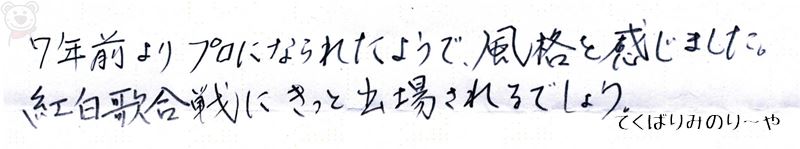 7年前よりプロになられたようで、風格を感じました。
紅白歌合戦にきっと出場されるでしょう。
てくばりみのりーや